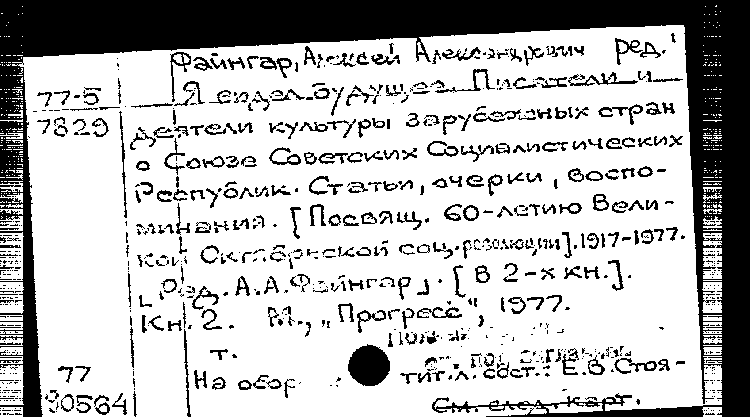 Файнгар, Алексей Александрович ред.
77-5 Я видел будущее. Писатели и
7829 деятели культуры зарубежных стран
о Союзе Советских Социалистических
Республик. Статьи, очерки, воспо-
минания. [Посвящ. 60-летию Вели-
кой Октябрьской соц. революции]. 1917-1977.
Ред. А.А.Файнгар. [В 2-х кн.].
Кн. 2. М., „Прогресс", 1977.
т.
77 На обор тит.л. сост.: Е.В.Стоя-
90564 См. след. карт.